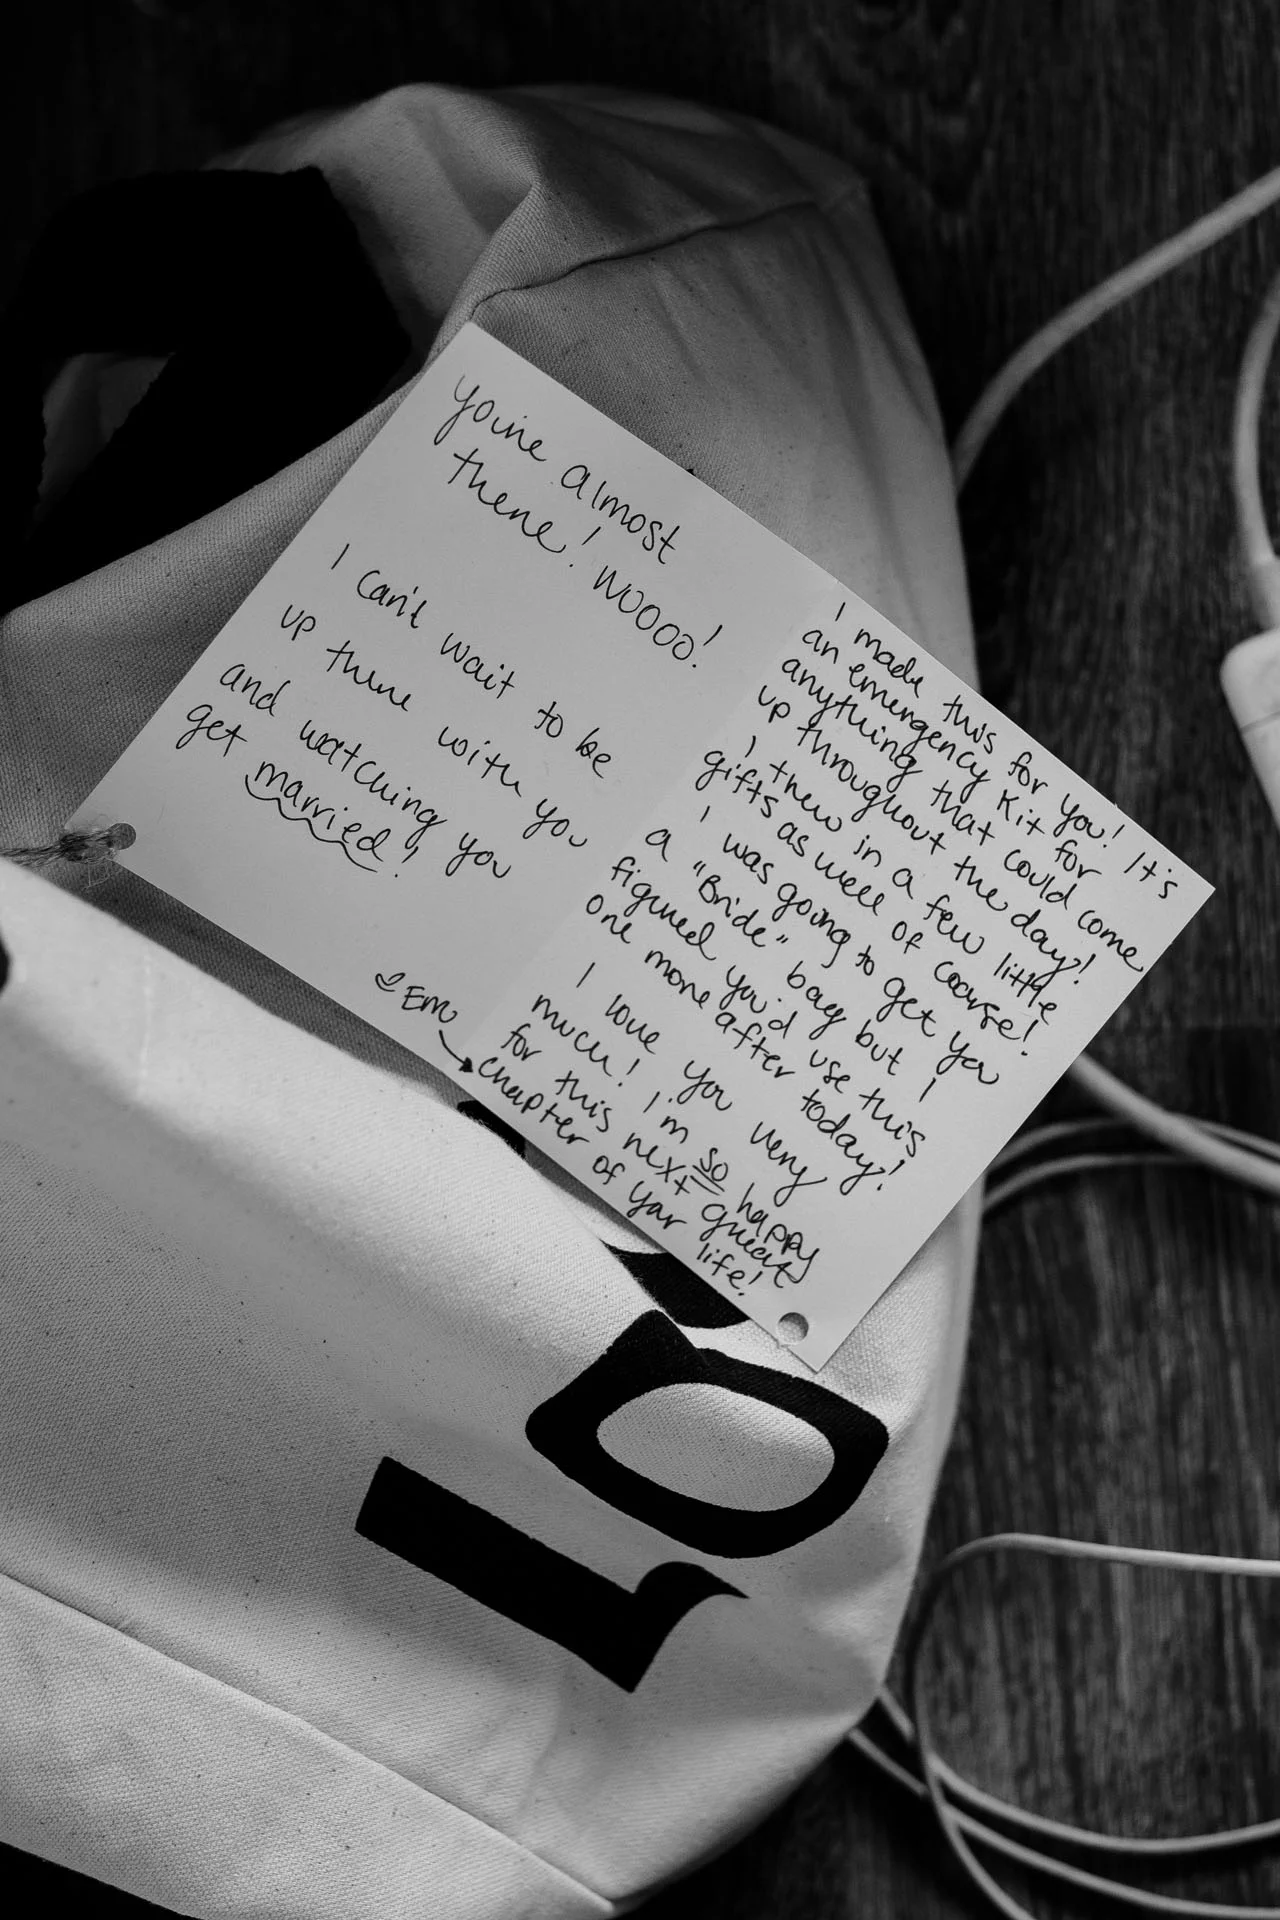 You're almost
there! WOOOO!
I can't wait to be
up there with you
and watching you
get married!
Em
I made this for you! It's
an emergency kit for
anything that could come
up throughout the day!
I threw in a few little
gifts as well of course!
I was going to get you
a "Bride" bag but I
figured you'd use this
one more after today!
I love you very
much! I'm so happy
for this next great
chapter of your life!